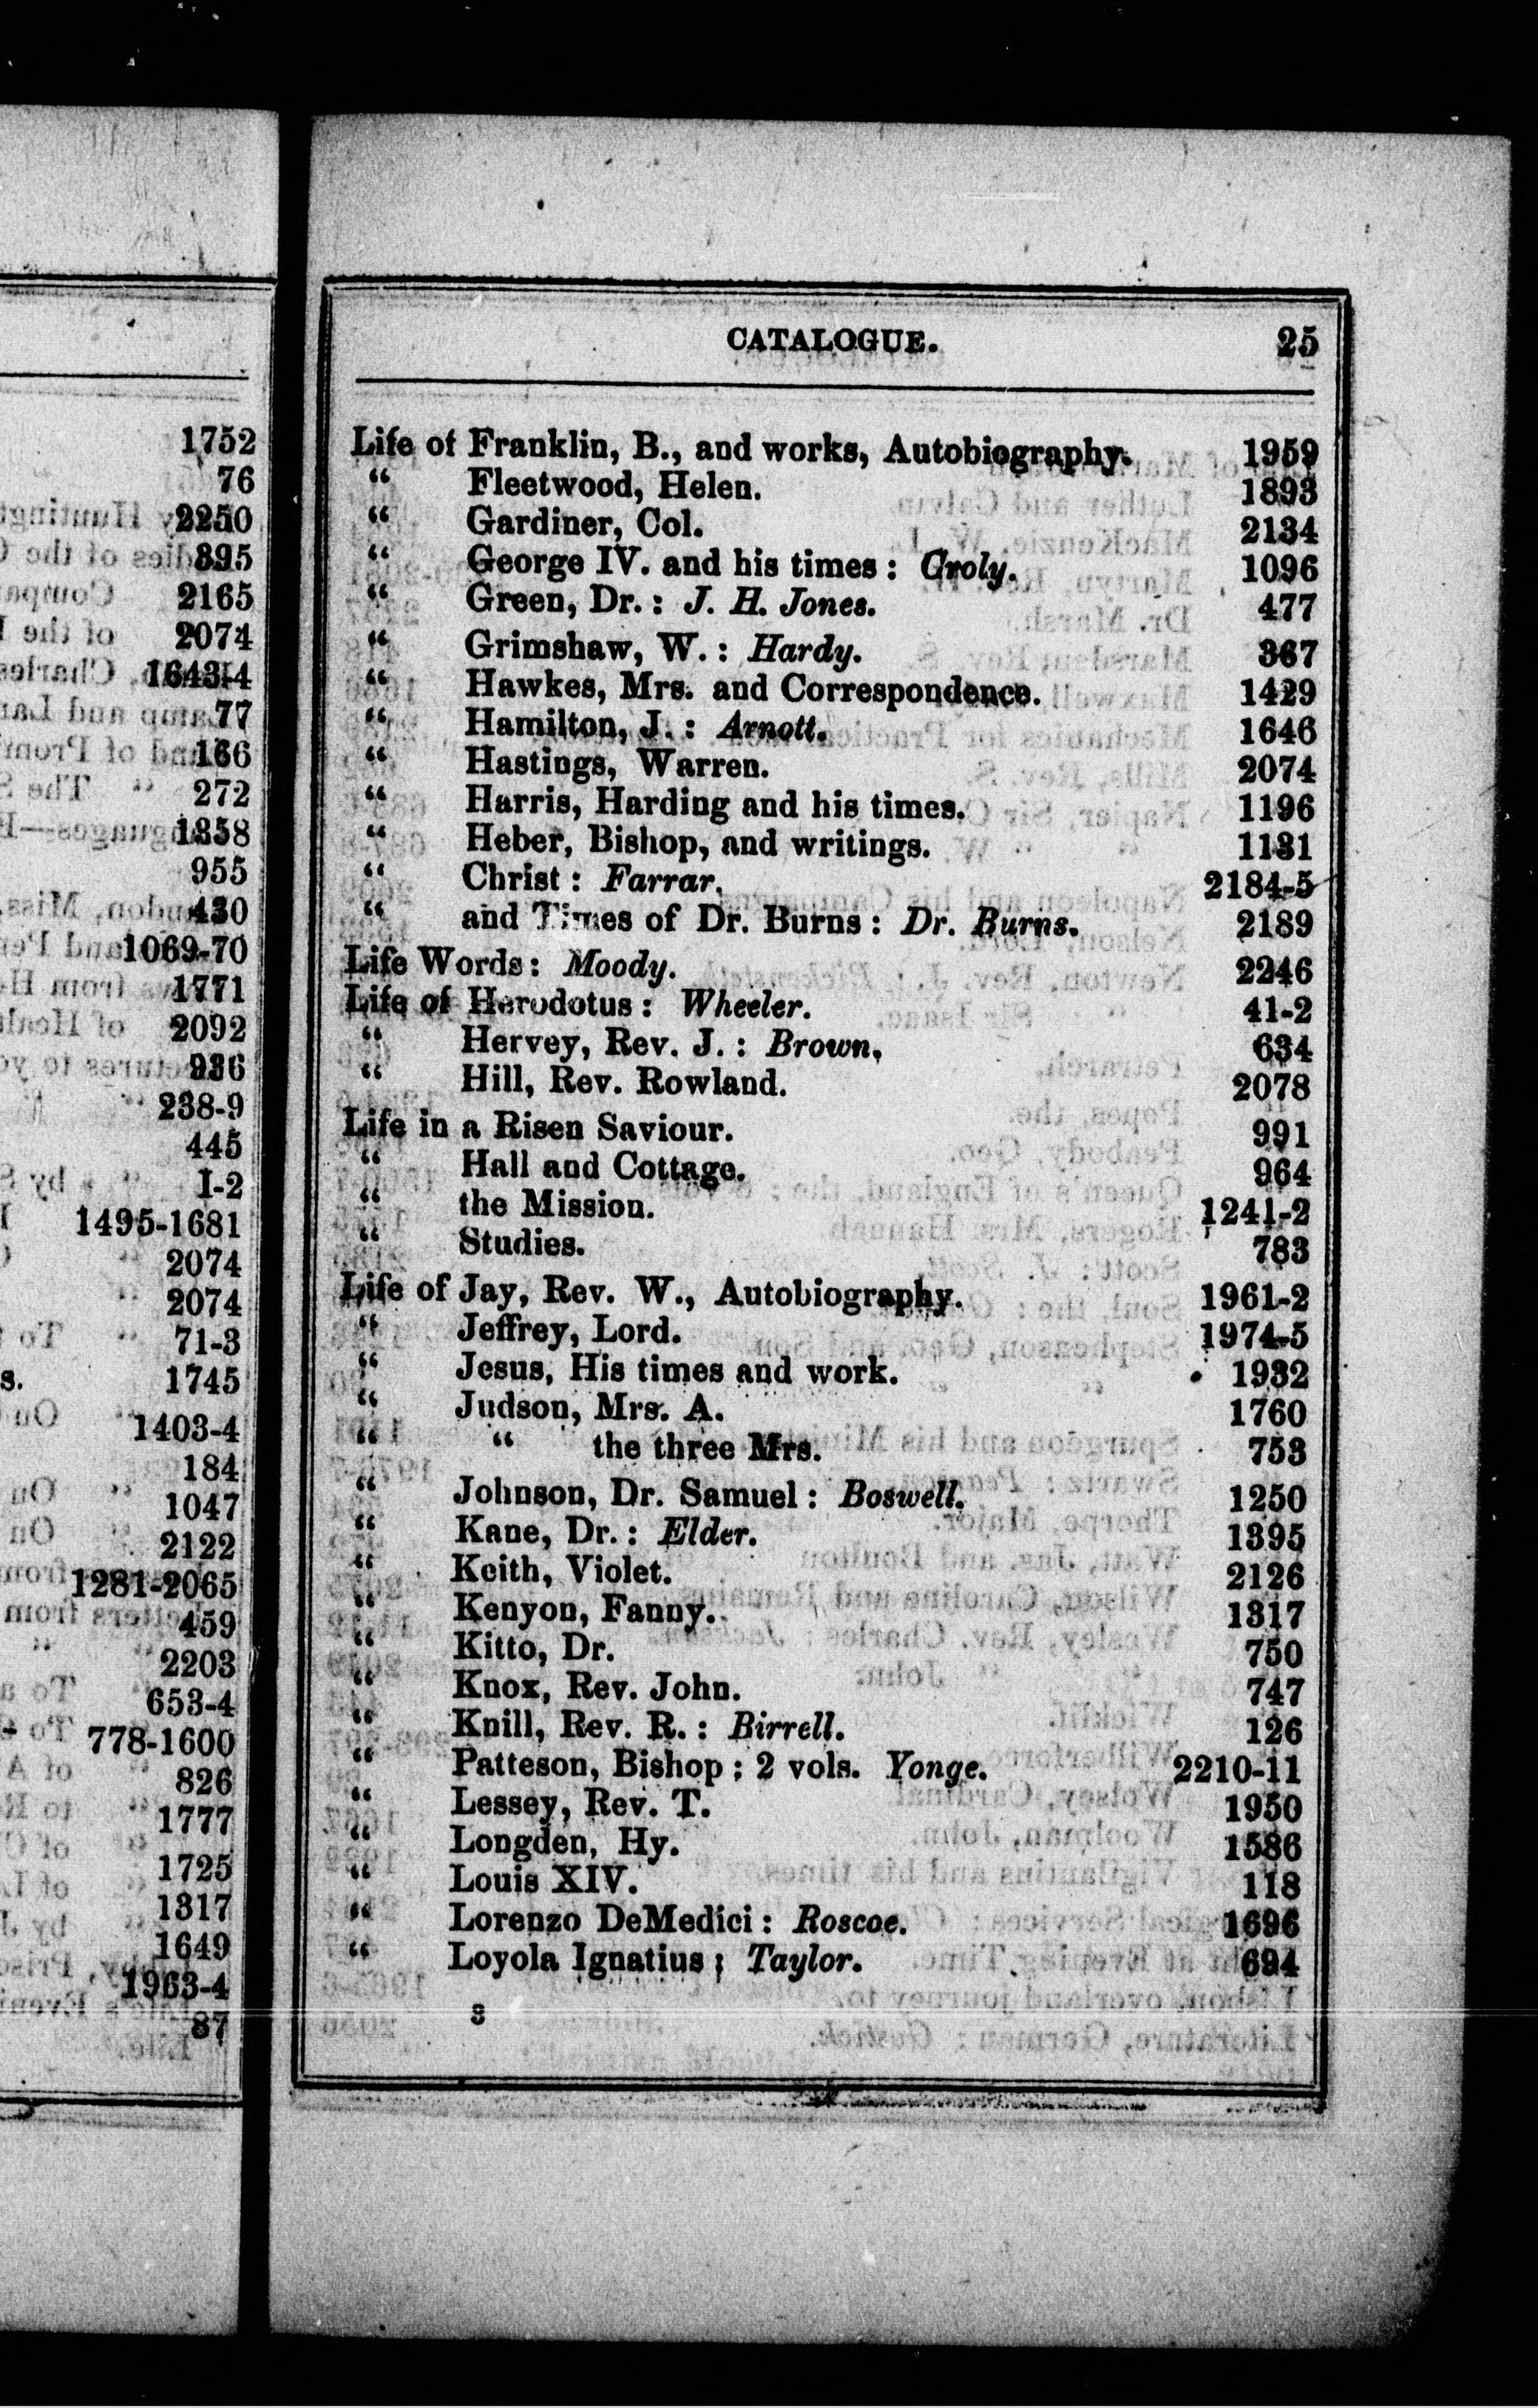 1752
76
2250
395
2165
2074
1643-4
77
166
272
1358
955
430
1069-70
1771
2092
936
238-9
445
I-2
1495-1681
2074
2074
71-3
s. 1745
1403-4
184
1047
2122
1281-2065
459
2203
653-4
778-1600
826
1777
1725
1317
1649
1963-4
87
CATALOGUE. 25
Life of Franklin, B., and works, Autobiography. 1959
“ Fleetwood, Helen. 1893
“ Gardiner, Col. 2134
“ George IV. and his times : Groly. 1096
“ Green, Dr. : J. H. Jones. 477
“ Grimshaw, W. : Hardy. 367
“ Hawkes, Mrs. and Correspondence. 1429
“ Hamilton, J. : Arnott. 1646
“ Hastings, Warren. 2074
“ Harris, Harding and his times. 1196
“ Heber, Bishop, and writings. 1131
“ Christ : Farrar. 2184-5
“ and Times of Dr. Burns : Dr. Burns. 2189
Life Words : Moody. 2246
Life of Herodotus : Wheeler. 41-2
“ Hervey, Rev. J. : Brown, 634
“ Hill, Rev. Rowland. 2078
Life in a Risen Saviour. 991
“ Hall and Cottage. 964
“ the Mission. 1241-2
“ Studies. 783
Life of Jay, Rev. W., Autobiography. 1961-2
“ Jeffrey, Lord. 1974-5
“ Jesus, His times and work. 1932
“ Judson, Mrs. A. 1760
“ “ the three Mrs. 753
“ Johnson, Dr. Samuel : Boswell. 1250
“ Kane, Dr. : Elder. 1395
“ Keith, Violet. 2126
“ Kenyon, Fanny. 1317
“ Kitto, Dr. 750
“ Knox, Rev. John. 747
“ Knill, Rev. R. : Birrell. 126
“ Patteson, Bishop ; 2 vols. Yonge. 2210-11
“ Lessey, Rev. T. 1950
“ Longden, Hy. 1586
“ Louis XIV. 118
“ Lorenzo DeMedici : Roscoe. 1696
“ Loyola Ignatius ; Taylor. 694
3